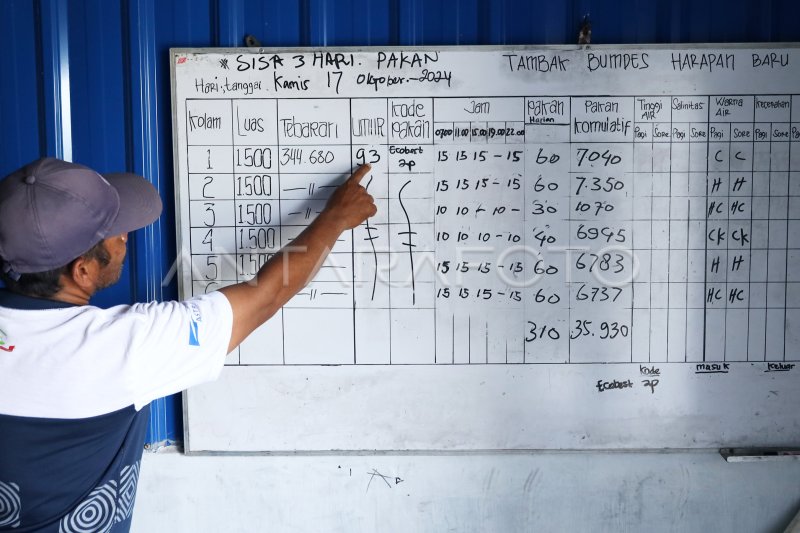 * SISA 3 HARI. PAKAN
TAMBAK BUMDES HARAPAN BARU
Hari,tanggal, Kamis 17 Oktober.-2024
Kolam Luas Tebaran UMUR kode pakan Jam pakan Harian Pakan Komulatif Tinggi AIR Salinitas Warna AIR
07.00 11.00 15.00 19.00 22.00 Pagi Sore Pagi Sore Pagi Sore Pagi Sore
1 1500 344.680 93 Ecobest 2p 15 15 15 - 15 60 7.040 C C
2 1500 —"— 15 15 15 - 15 60 7.350 H H
3 1500 —"— 10 10 - 10 - 30 1070 HC HC
4 1500 —"— 10 10 10 - 10 40 6945 CK CK
5 —"— 15 15 15 - 15 60 6783 H H
—"— 15 15 15 - 15 60 6737 HC HC
310 35.930
kode masuk keluar
Ecobest 2p
ANTARAFOTO